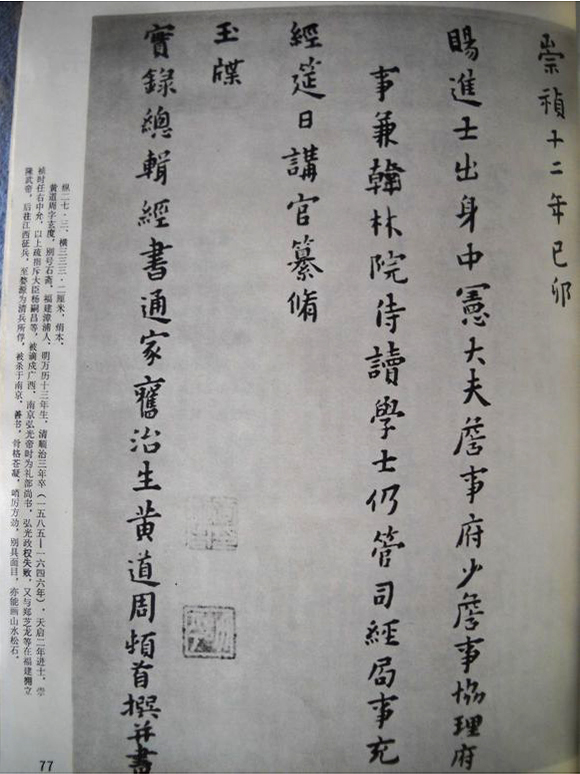 崇禎十二年己卯
賜進士出身中憲大夫詹事府少詹事協理府
事兼翰林院侍讀學士仍管司經局事充
經筵日講官纂脩
玉牒
實錄總輯經書通家舊治生黄道周頓首撰并書
纵二七·三、横三三三·二厘米,绢本。
黄道周字玄度,别号石斋,福建漳浦人,明万历十三年生,清顺治三年卒(一五八五—一六四六年),天启二年进士,崇
祯时任右中允,以上疏指斥大臣杨嗣昌等,被谪戍广西,南京弘光帝时为礼部尚书,弘光政权失败,又与郑芝龙等在福建拥立
隆武帝,后往江西征兵,至婺源为清兵所俘,被杀于南京,善书,骨格苍凝,峭厉方劲,别具面目,亦能画山水松石。
77